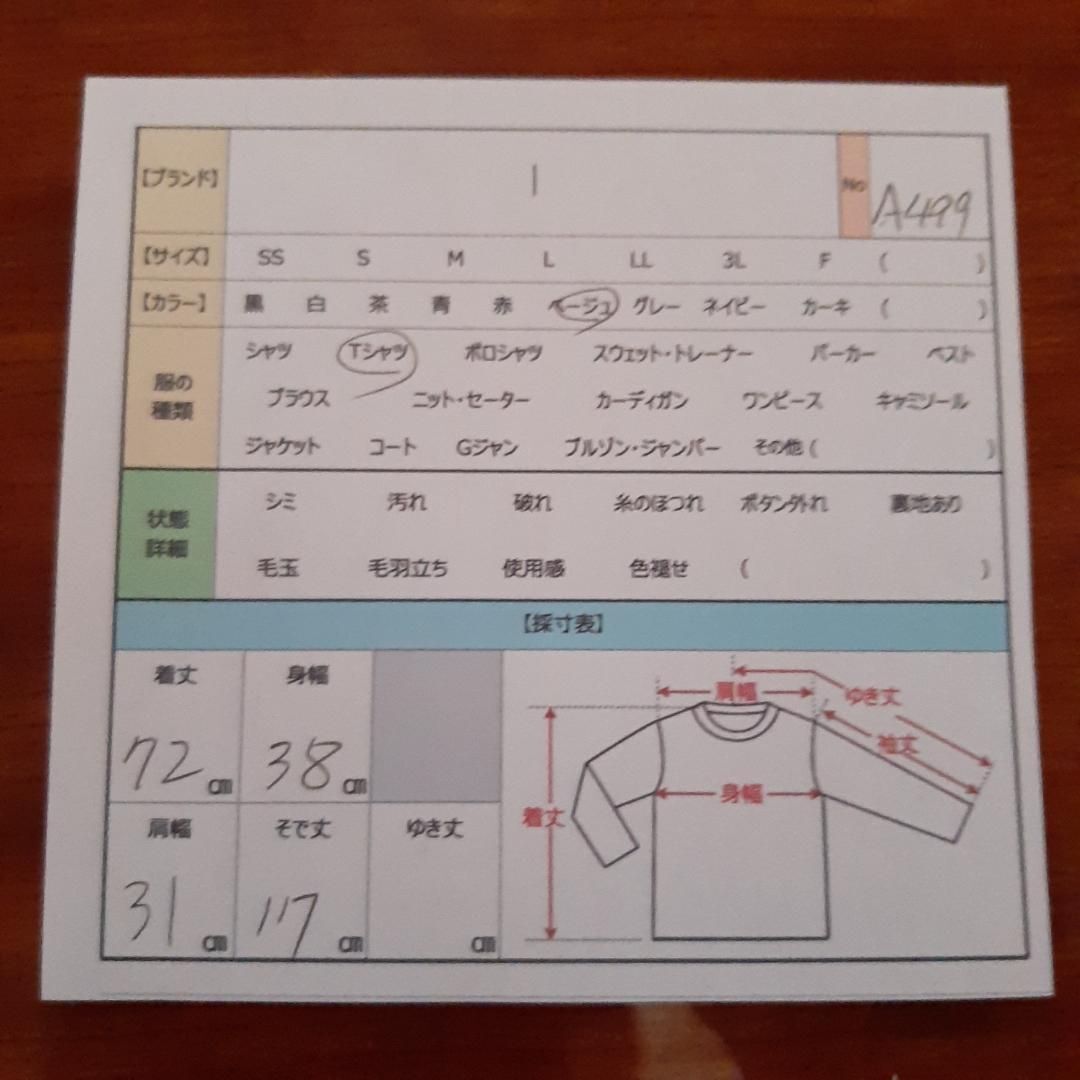 【ブランド】 | No A499
【サイズ】 SS S M L LL 3L F ( )
【カラー】 黒 白 茶 青 赤 ベージュ グレー ネイビー カーキ ( )
服の種類
シャツ Tシャツ ポロシャツ スウェット・トレーナー パーカー ベスト
ブラウス ニット・セーター カーディガン ワンピース キャミソール
ジャケット コート Gジャン ブルゾン・ジャンパー その他 ( )
状態詳細
シミ 汚れ 破れ 糸のほつれ ボタン外れ 裏地あり
毛玉 毛羽立ち 使用感 色褪せ ( )
【採寸表】
着丈 身幅
72 cm 38 cm
肩幅 そで丈 ゆき丈
31 cm 17 cm cm
肩幅 ゆき丈
袖丈
身幅
着丈